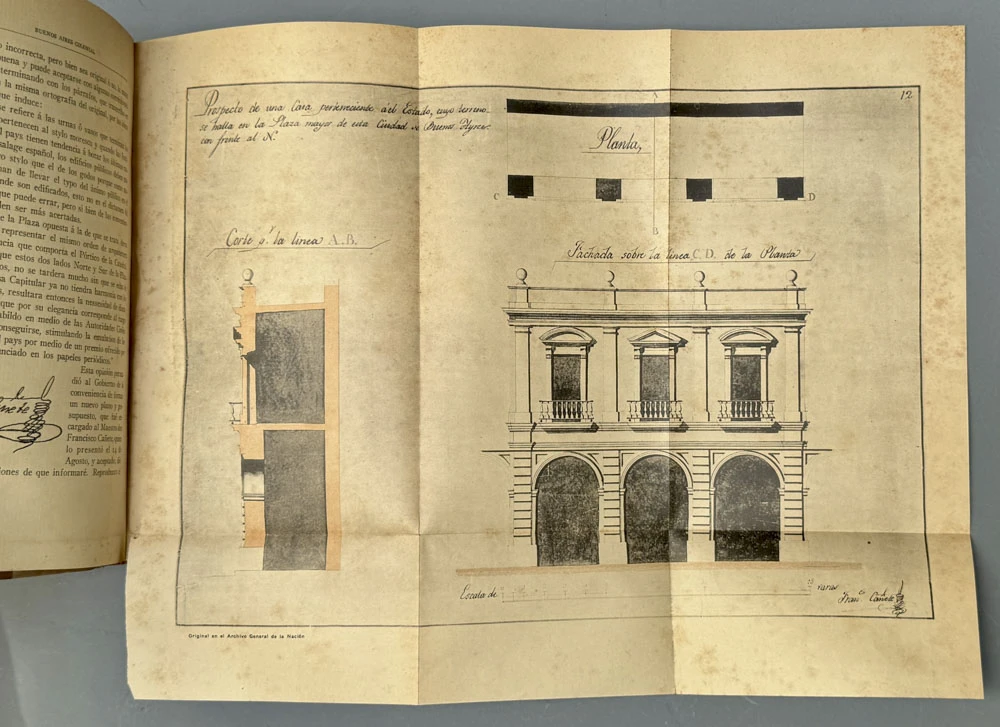 BUENOS AIRES COLONIAL
incorrecta, pero bien sea original
buena y puede aceptarse con algunas
terminando con los párrafos, que
la misma ortografía del original, por las
que induce:
se refiere á las urnas ó vasos que
pertenecen al stylo moresco, y quando
pays tienen tendencia á
salage español, los edificios públicos
ro stylo que el de los godos
han de llevar el typo del
nde son edificados, esto no es el
que puede errar, pero si bien
den ser más acertadas.
e la Plaza opuesta á la de que se
representar el mismo orden de
ncia que comporta el Pórtico de la
que estos dos lados Norte y Sur de la Plaza
os, no se tardera mucho sin que se
sa Capitular ya no tiendra harmonia con
s, resultara entonces la necesidad de
que por su elegancia corresponde al
abildo en medio de las Autoridades
onseguirse, stimulando la emulacion de
l pays por medio de un premio ofrecido
unciado en los papeles periódicos."
Esta opinión
dió al Gobierno de la
conveniencia de
un nuevo plano y
supuesto, que fué
cargado al Maestro
Francisco Cañete, quien
lo presentó el 14 de
Agosto, y aceptado,
iones de que informaré.
Prospecto de una Casa perteneciente á el Estado, cuyo terreno
se halla en la Plaza mayor de esta Ciudad de Buenos Ayres
con frente al N.
12
A
Planta,
C
D
B
Corte pr. la linea A.B.
Fachada sobre la linea C.D. de la Planta
Escala de
varas
Franco. Cañete
Original en el Archivo General de la Nación